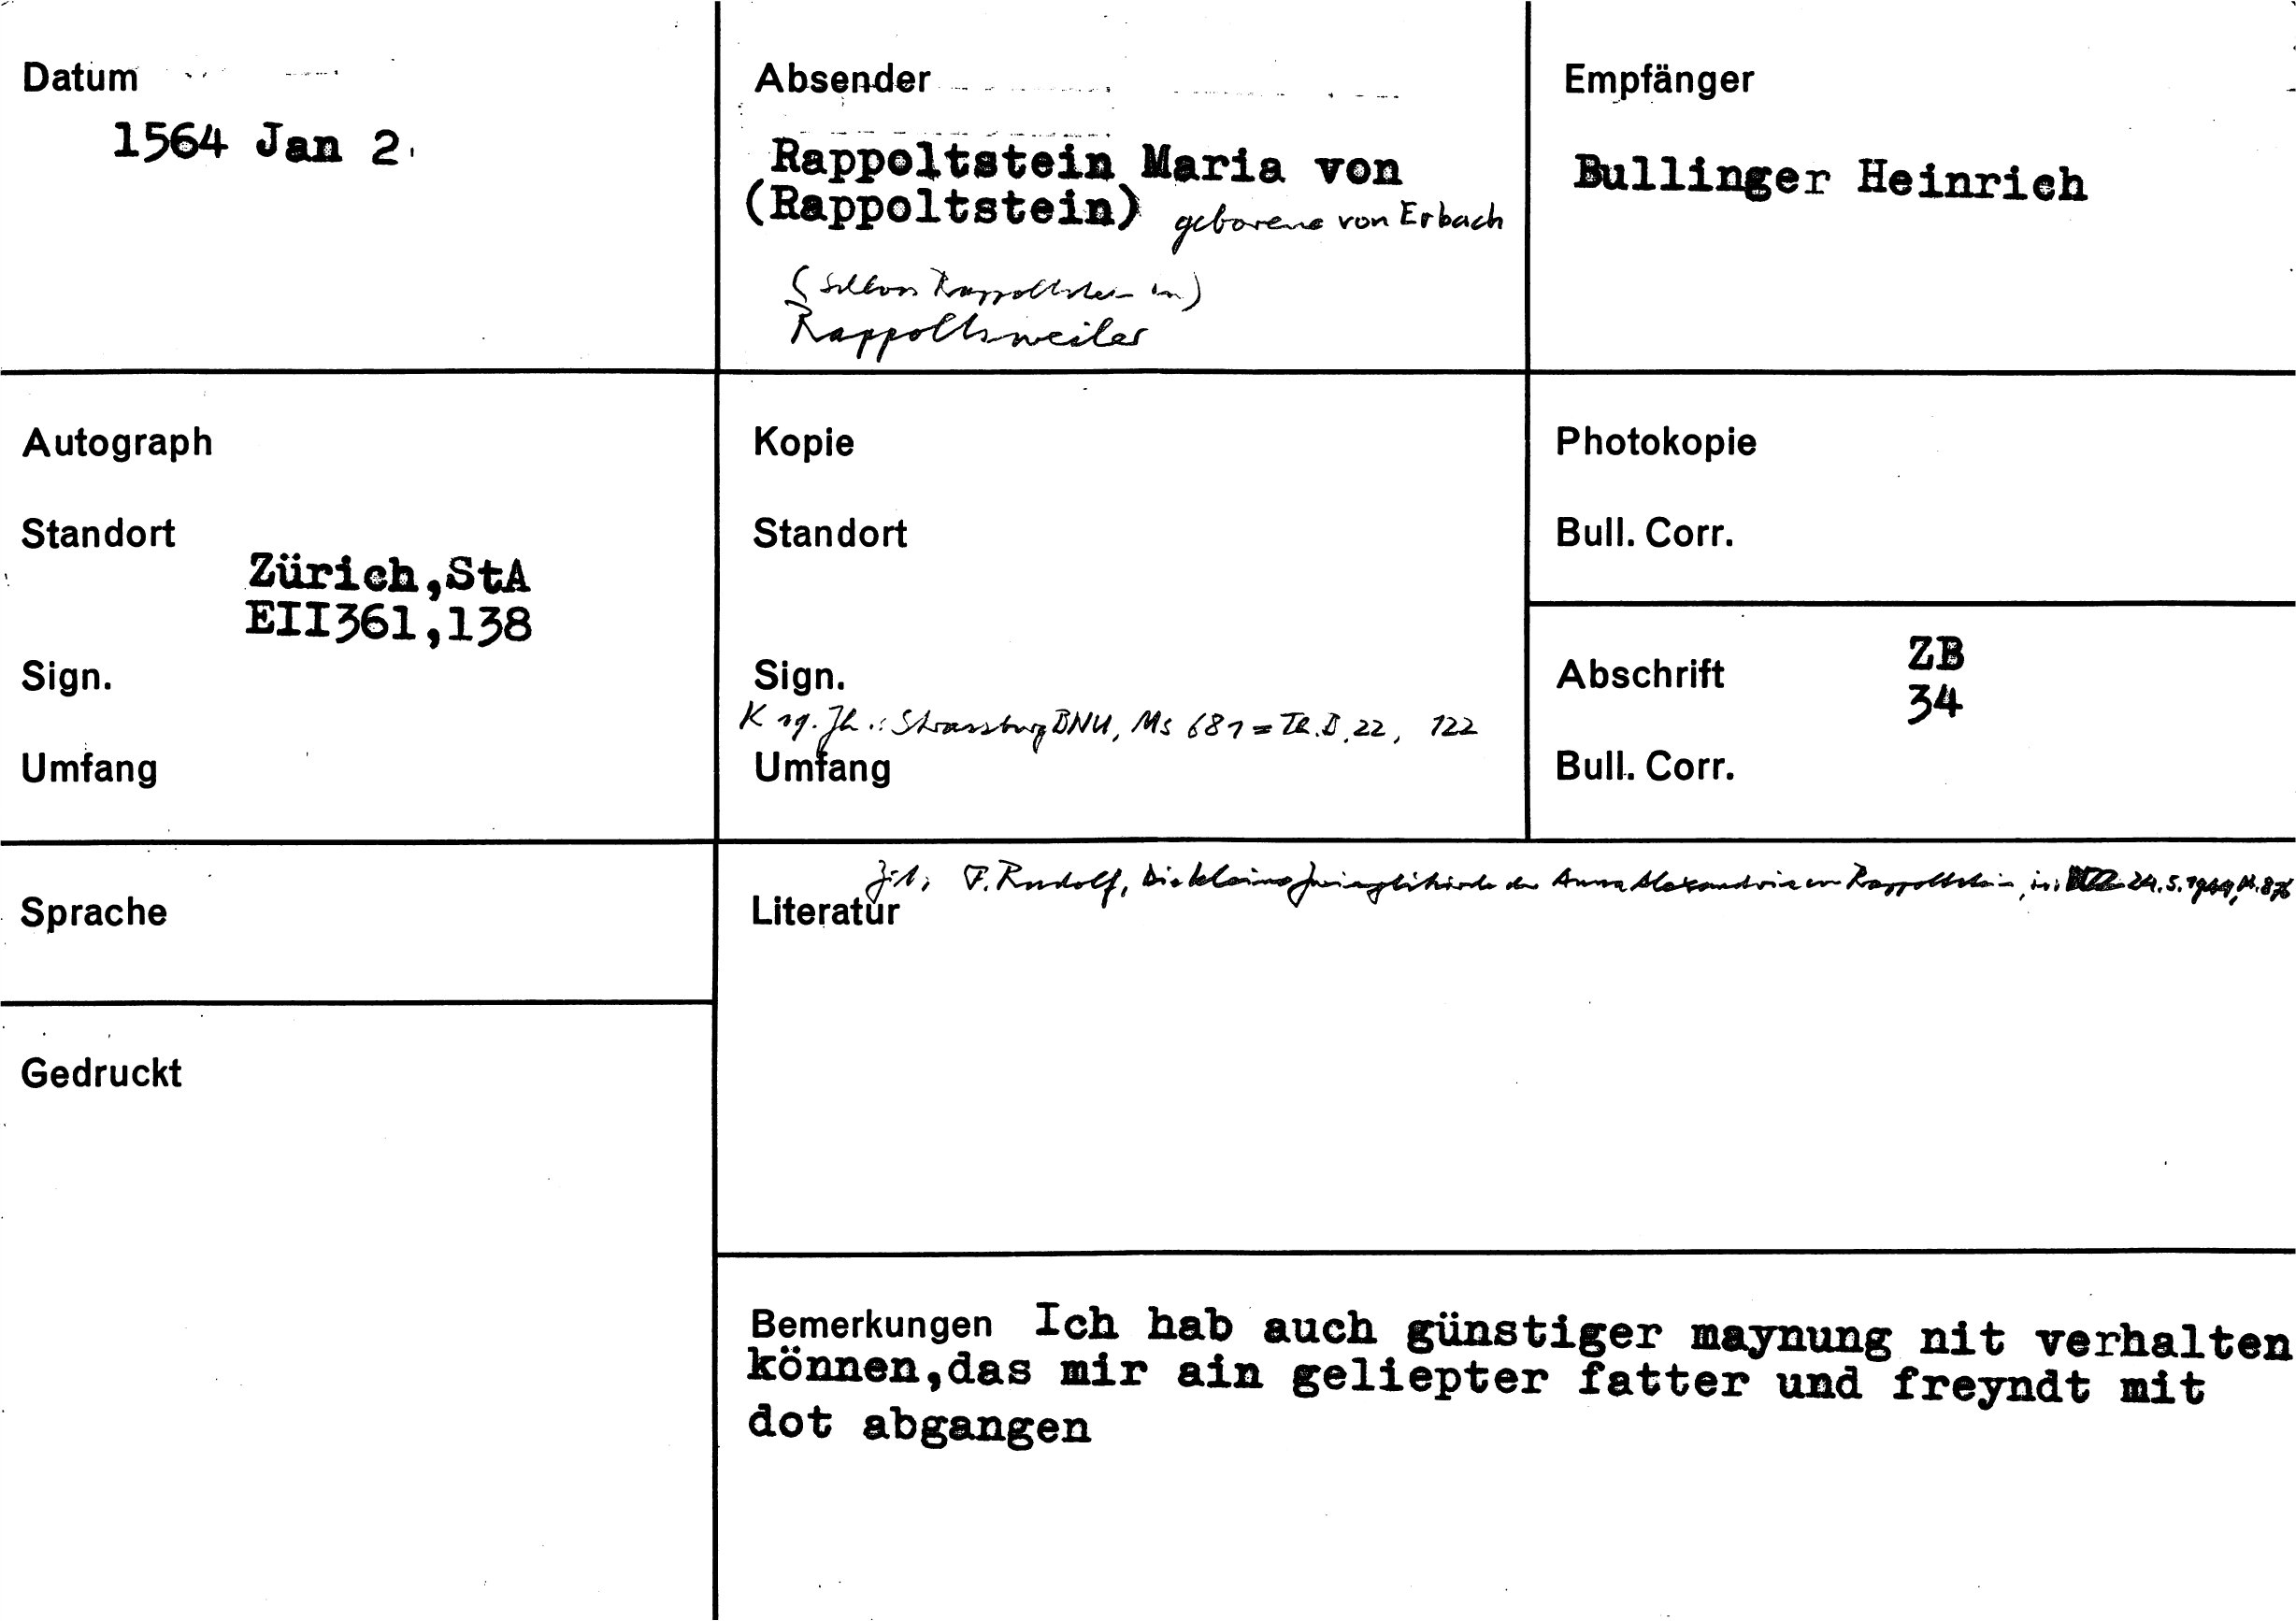 Datum
1564 Jan 2.
Absender
Rappoltstein Maria von
(Rappoltstein) geborene von Erbach
(Schloss Rappoltstein in)
Rappoltsweiler
Empfänger
Bullinger Heinrich
Autograph
Standort
Zürich,StA
EII361,138
Sign.
Umfang
Kopie
Standort
Sign.
K 19. Jh.: Strassburg BNU, Ms 681 = Th.B.22, 122
Umfang
Photokopie
Bull. Corr.
Abschrift ZB
34
Bull. Corr.
Sprache
Zit. F. Rudolf, Die kleine Zwinglikirche der Anna Alexandria von Rappoltstein, in: 24.5.1944,
Literatur
Gedruckt
Bemerkungen Ich hab auch günstiger maynung nit verhalten
können,das mir ain geliepter fatter und freyndt mit
dot abgangen